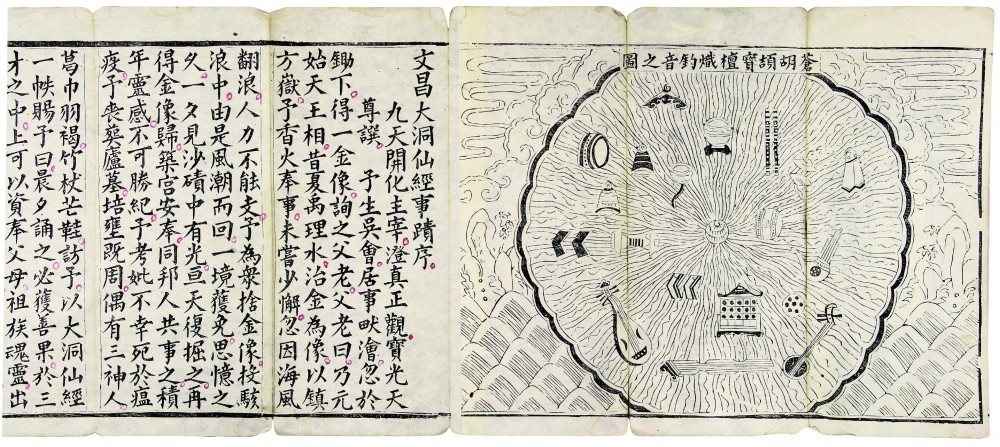 蒼胡頡寶檀熾鈞音之圖
文昌大洞仙經事蹟序
九天開化主宰澄真正觀寶光天
尊譔 予生吳會居事畎澮忽於
鋤下得一金像詢之父老父老曰乃元
始天王相昔夏禹理水治金為像以鎮
方嶽予香火奉事未嘗少懈忽因海風
翻浪人力不能支予為衆捨金像投駭
浪中由是風潮而回一境獲免思憶之
久一夕見沙磧中有光亘天復掘之再
得金像歸築宮安奉同邦人共事之積
年靈感不可勝紀予考妣不幸死於瘟
疫予喪葬廬墓培壅既周偶有三神人
葛巾羽褐竹杖芒鞋訪予以大洞仙經
一帙賜予曰晨夕誦之必獲善果於三
才之中上可以資奉父母祖族魂靈出